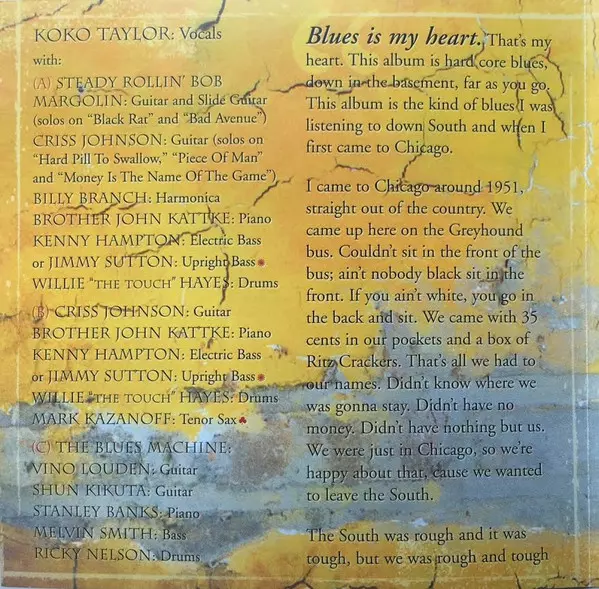 KOKO TAYLOR: Vocals
with:
(A) STEADY ROLLIN' BOB
MARGOLIN: Guitar and Slide Guitar
(solos on "Black Rat" and "Bad Avenue")
CRISS JOHNSON: Guitar (solos on
"Hard Pill To Swallow," "Piece Of Man"
and "Money Is The Name Of The Game")
BILLY BRANCH: Harmonica
BROTHER JOHN KATTKE: Piano
KENNY HAMPTON: Electric Bass
or JIMMY SUTTON: Upright Bass
WILLIE "THE TOUCH" HAYES: Drums
(B) CRISS JOHNSON: Guitar
BROTHER JOHN KATTKE: Piano
KENNY HAMPTON: Electric Bass
or JIMMY SUTTON: Upright Bass
WILLIE "THE TOUCH" HAYES: Drums
MARK KAZANOFF: Tenor Sax
(C) THE BLUES MACHINE:
VINO LOUDEN: Guitar
SHUN KIKUTA: Guitar
STANLEY BANKS: Piano
MELVIN SMITH: Bass
RICKY NELSON: Drums
Blues is my heart. That's my
heart. This album is hard core blues,
down in the basement, far as you go.
This album is the kind of blues I was
listening to down South and when I
first came to Chicago.
I came to Chicago around 1951,
straight out of the country. We
came up here on the Greyhound
bus. Couldn't sit in the front of the
bus; ain't nobody black sit in the
front. If you ain't white, you go in
the back and sit. We came with 35
cents in our pockets and a box of
Ritz Crackers. That's all we had to
our names. Didn't know where we
was gonna stay. Didn't have no
money. Didn't have nothing but us.
We were just in Chicago, so we're
happy about that, cause we wanted
to leave the South.
The South was rough and it was
tough, but we was rough and tough